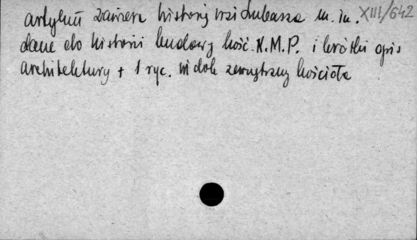 artykuł zawiera historię wsi Lubasza m.in. XIII/642
dane do historii budowy kość. N.M.P. i krótki opis
architektury + 1 ryc. widok zewnętrzny kościoła